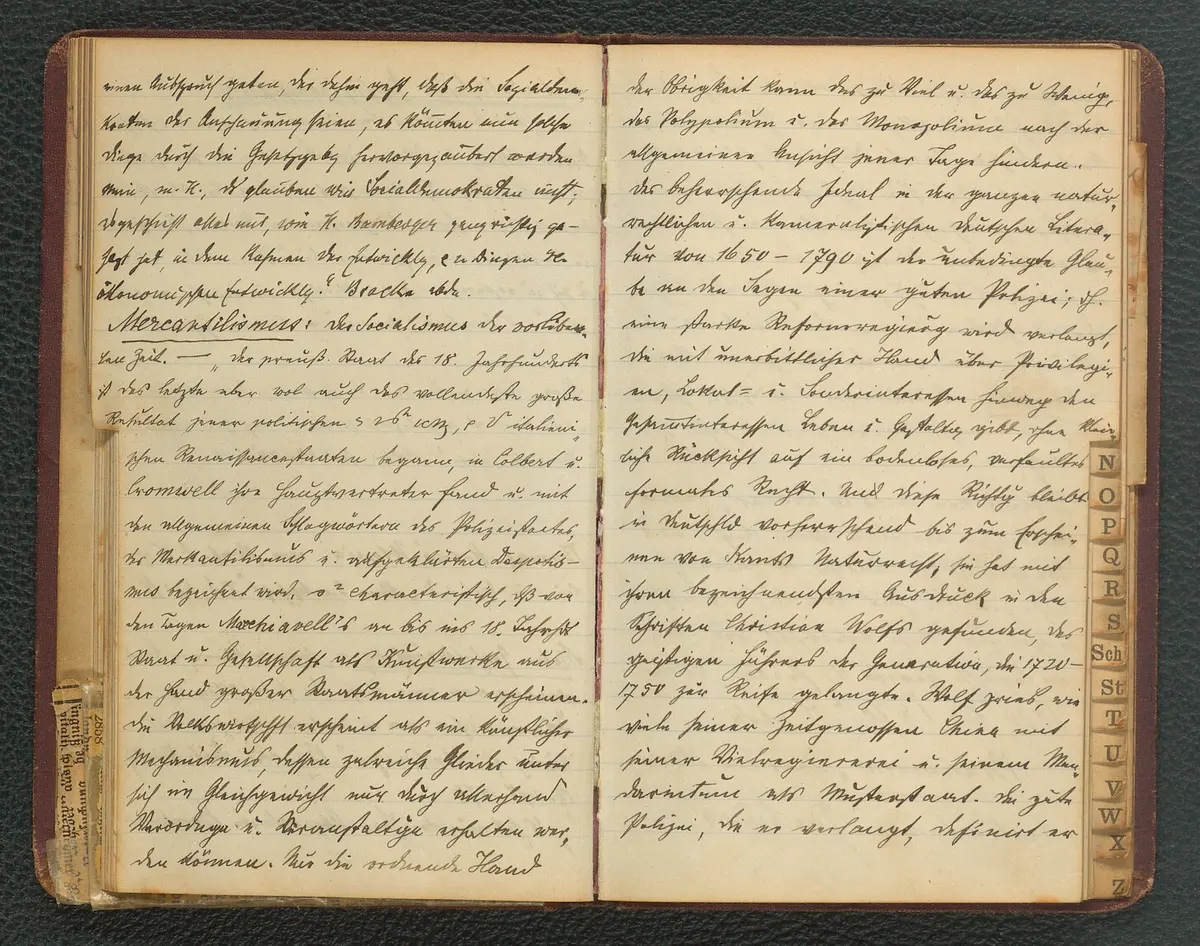 einen Ausspruch gethan, der dahin geht, daß die Socialdemo-
kraten der Anschauung seien, es könnten nun solche
Dinge durch die Gesetzgebg hervorgezaubert werden
nein, m. H., das glauben wir Socialdemokraten nicht;
das geschieht alles nur, wie H. Bamberger ganz richtig ge-
sagt hat, in dem Rahmen der Entwicklg, den Dingen der
ökonomischen Entwicklg." Bracke ebda.
Mercantilismus: der Socialismus der vorliberalen
Zeit. — „der preuß. Staat des 18. Jahrhunderts
ist das letzte aber wol auch das vollendetste große
Resultat jener politischen italieni-
schen Renaissancestaaten begann, in Colbert u.
Cromwell ihre Hauptvertreter fand u. mit
den allgemeinen Schlagwörtern des Polizeistaates,
des Merkantilismus u. aufgeklärten Despotis-
mus bezeichnet wird. characteristisch, daß von
den Tagen Macchiavell's an bis ins 18. Jahrhdt
Staat u. Gesellschaft als Kunstwerke aus
der Hand großer Staatsmänner erscheinen.
Die Volkswirtschft erscheint als ein künstlicher
Mechanismus, dessen zalreiche Glieder unter
sich im Gleichgewicht nur durch allerhand
Verordnge u. Veranstaltge erhalten wer-
den können. Nur die ordnende Hand
der Obrigkeit kann das zu Viel u. das zu Wenig,
das Polypolium u. das Monopolium nach der
allgemeinen Ansicht jener Tage hindern.
Das beherrschende Ideal in der ganzen natur-
rechtlichen u. kameralistischen deutschen Litera-
tur von 1650 – 1790 ist der unbedingte Glau-
be an den Segen einer guten Polizei; d. h.
eine starke Reformregierg wird verlangt,
die mit unerbittlicher Hand über Privilegi-
en, Lokal= u. Sonderinteressen hinweg den
Gesamtinteressen Leben u. Gestaltg gibt, ohne klein-
liche Rücksicht auf ein bodenloses, verfaultes
formales Recht. Und diese Richtg bleibt
in Deutschld vorherrschend bis zum Erschei-
nen von Kants Naturrecht; sie hat mit
ihren bezeichnendsten Ausdruck in den
Schriften Christian Wolfs gefunden, des
geistigen Führers der Generation, die 1720–
1750 zur Reife gelangte. Wolf pries, wie
viele seiner Zeitgenossen China mit
seiner Vielregiererei u. seinem Man-
darintum als Musterstaat. Die gute
Polizei, die er verlangt, definirt er
N
O
P
Q
R
S
Sch
St
T
U
V
W
X
Z